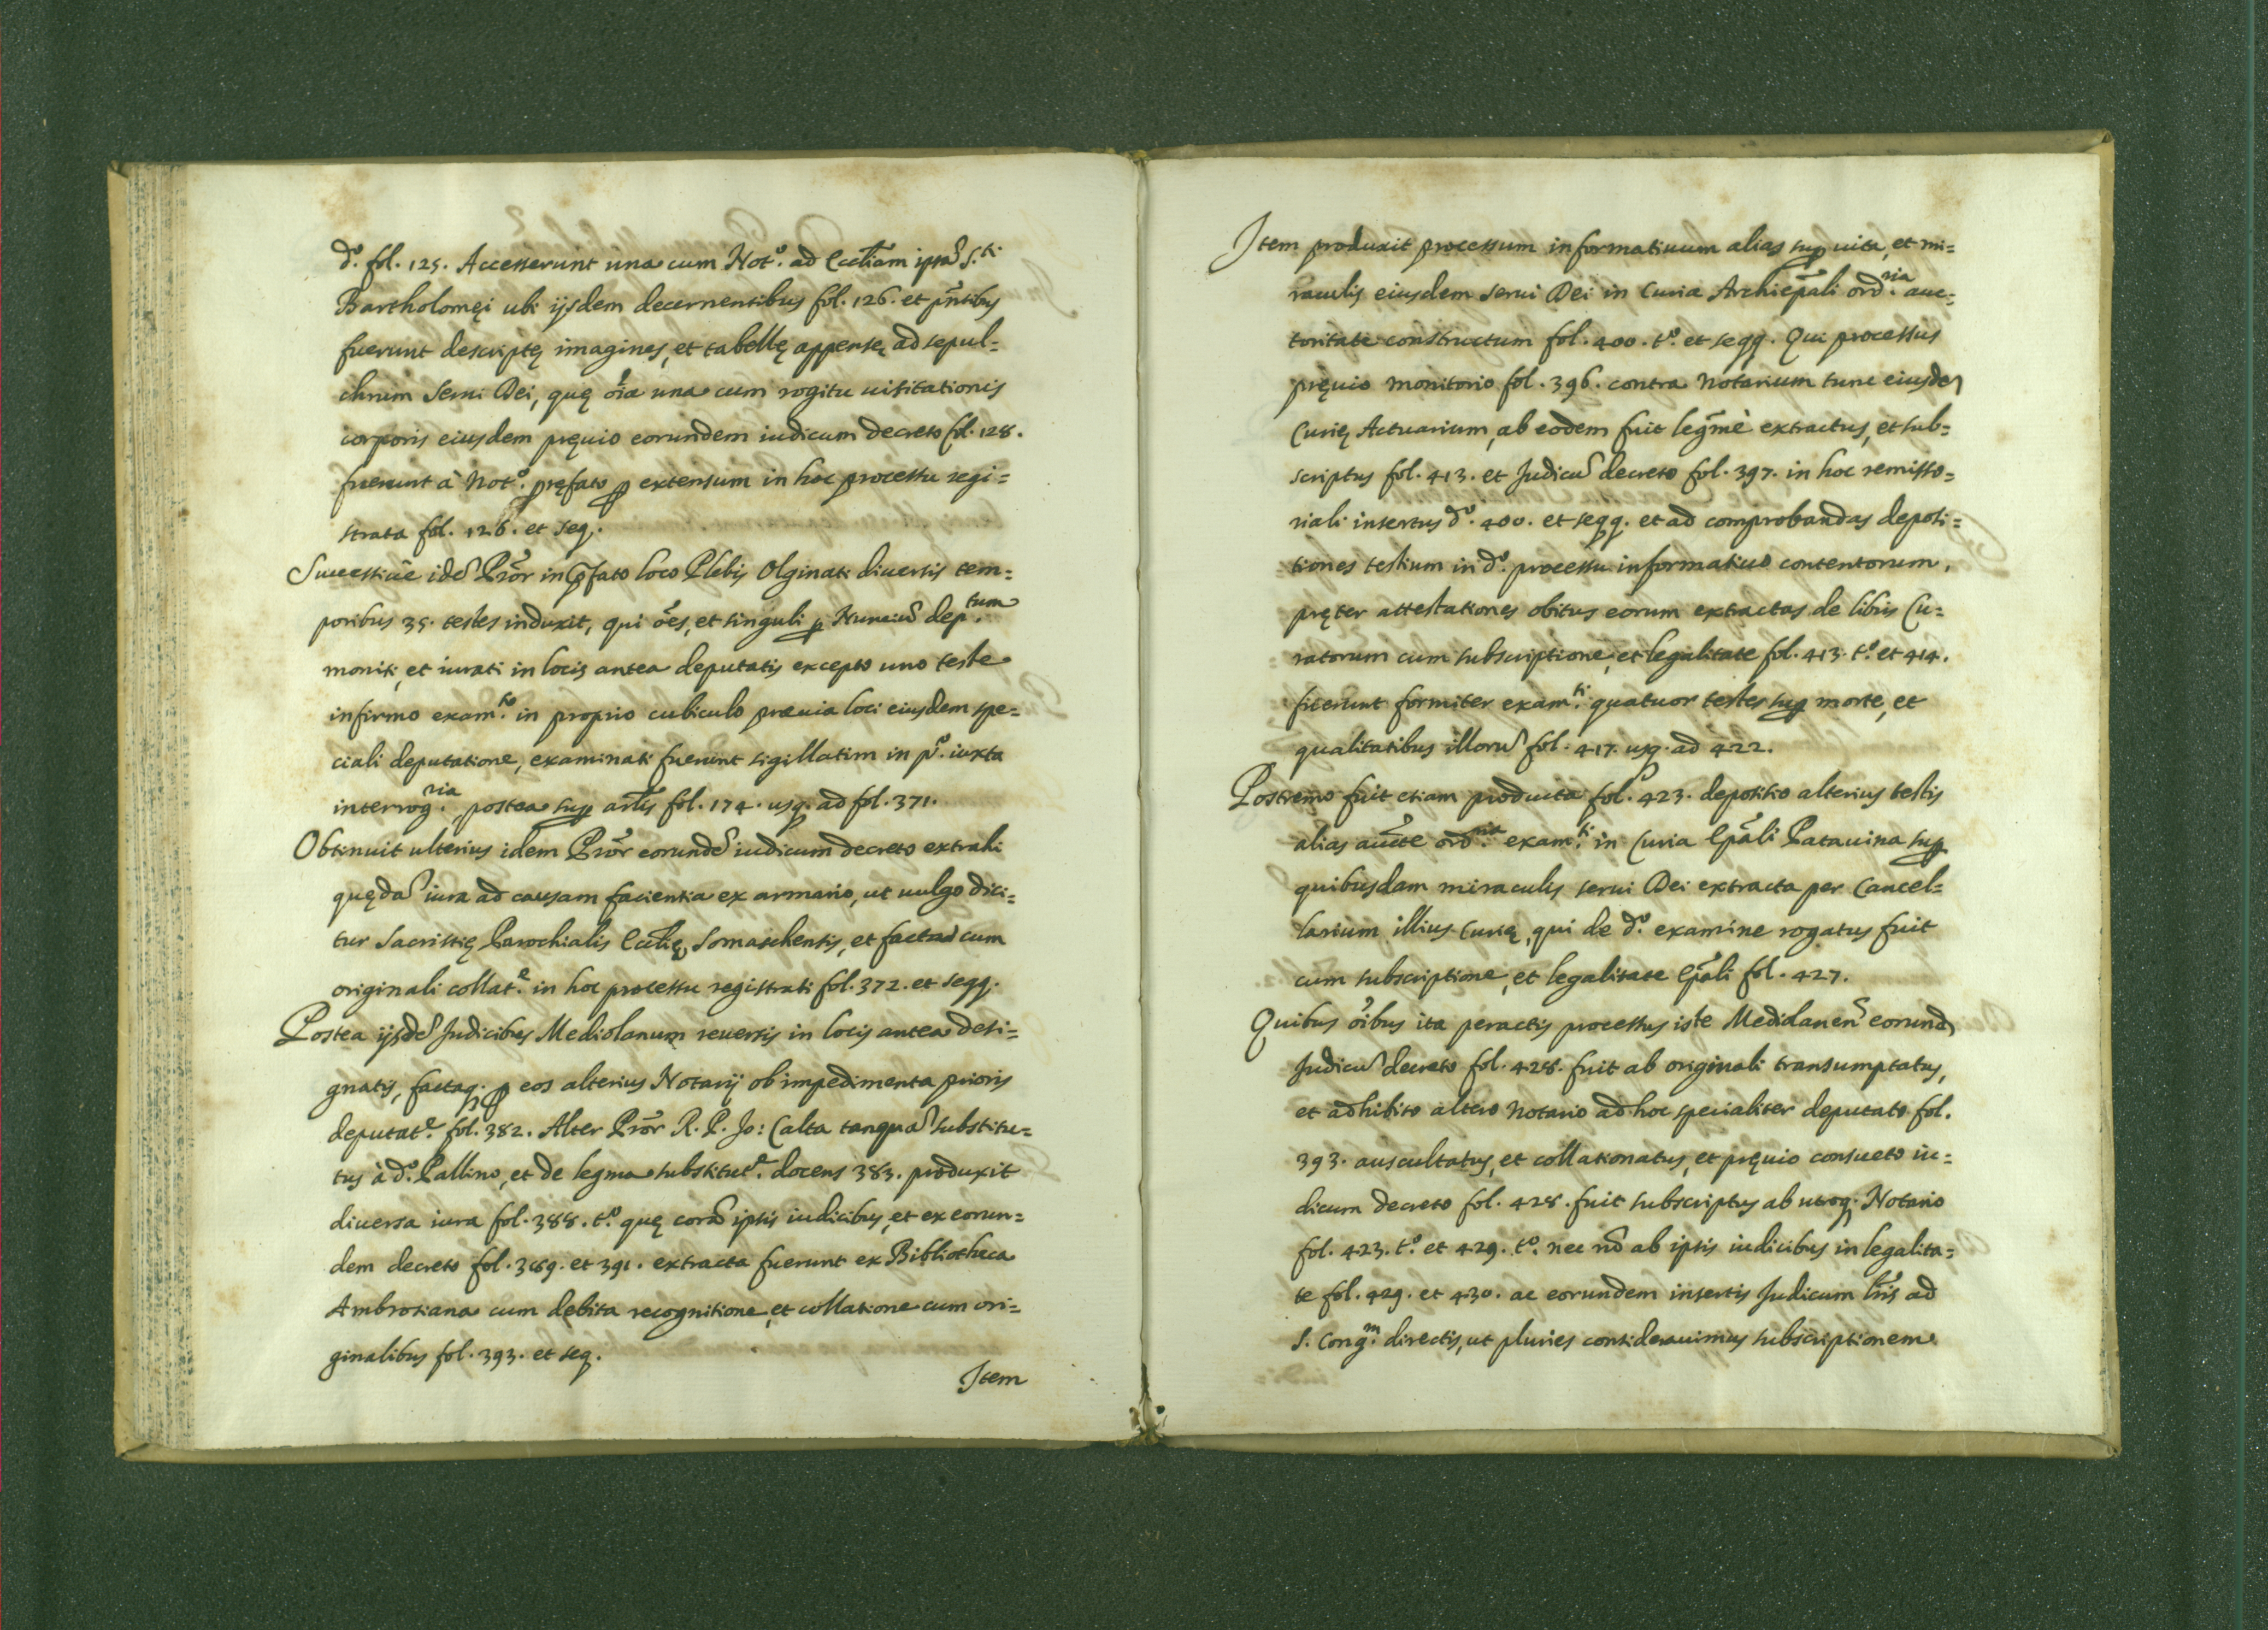 d.º fol. 125. Accesserunt una cum Not.º ad Eccl̃iam ipsã S.ti
Bartholomęi ubi ijsdem decernentibus fol. 126. et pñtibus
fuerunt descriptę imagines, et tabellę appensę ad sepul=
chrum Serui Dei, quę oĩa una cum rogitu uisitationis
corporis eiusdem pręuio eorundem iudicum decreto fol. 128.
fuerunt à Not.º pręfato ꝑ extensum in hoc processu regi=
strata fol. 126. et seq.
Successiuè idẽ Prõr in p̃fato loco Plebis Olginati diuersis tem=
poribus 35. testes induxit, qui oẽs, et singuli ꝑ Nunciũ dep.tum
moniti, et iurati in locis antea deputatis excepto uno teste
infirmo exam.to in proprio cubiculo præuia loci eiusdem spe=
ciali deputatione, examinati fuerunt sigillatim in p.º iuxta
interrog.ria, postea suꝑ artl̃is fol. 174. usq. ad fol. 371.
Obtinuit ulterius idem Prõr eorundẽ iudicum decreto extrahi
quędã iura ad causam facientia ex armario, ut uulgo dici=
tur Sacristię Parochialis Eccl̃ię Somaschensis, et facta cum
originali collat.e in hoc processu registrati fol. 372. et seqq.
Postea ijsdẽ Judicibus Mediolanum reuersis in locis antea desi=
gnatis, factaq. ꝑ eos alterius Notarij ob impedimenta prioris
deputat.e fol. 382. Alter Prõr R. P. Jo: Calta tanquã substitu=
tus à d.º Pallino, et de legma substitut.e docens 383. produxit
diuersa iura fol. 388. t.º quę corã ipsis iudicibus, et ex eorun=
dem decreto fol. 389. et 391. extracta fuerunt ex Bibliotheca
Ambrosiana cum debita recognitione, et collatione cum ori=
ginalibus fol. 393. et seq.
Item
Item produxit processum informatiuum alias suꝑ uita, et mi=
raculis eiusdem serui Dei in Curia Archiep̃ali ord.ria auc=
toritate constructum fol. 400. t.º et seqq. Qui processus
pręuio monitorio fol. 396. contra Notarium tunc eiusdẽ
Curię Actuarium, ab eodem fuit legm̃è extractus, et sub=
scriptus fol. 413. et Judicũ decreto fol. 397. in hoc remisso=
riali insertus d.º 400. et seqq. et ad comprobandas deposi=
tiones testium in d.º processu informatiuo contentorum,
pręter attestationes obitus eorum extractas de libris Cu=
ratorum cum subscriptione, et legalitate fol. 413. t.º et 414.
fuerunt formiter exam.ti quatuor testes suꝑ morte, et
qualitatibus illorũ fol. 417. usq. ad 422.
Postremo fuit etiam producta fol. 423. depositio alterius testis
alias aucte ord.ria exam.ti in Curia Ep̃ali Patauina suꝑ
quibusdam miraculis serui Dei extracta per Cancel=
larium illius Curię, qui de d.º examine rogatus fuit
cum subscriptione, et legalitate Ep̃ali fol. 427.
Quibus oĩbus ita peractis processus iste Mediolanen̄ eorundẽ
Judicũ decreto fol. 428. fuit ab originali transumptatus,
et adhibito altero Notario ad hoc specialiter deputato fol.
393. auscultatus, et collationatus, et pręuio consueto iu=
dicum decreto fol. 428. fuit subscriptus ab utroq. Notario
fol. 423. t.º et 429. t.º nec nõ ab ipsis iudicibus in legalita=
te fol. 429. et 430. ac eorundem insertis Judicum lr̃is ad
S. Cong.m directis, ut pluries considerauimus subscriptionem